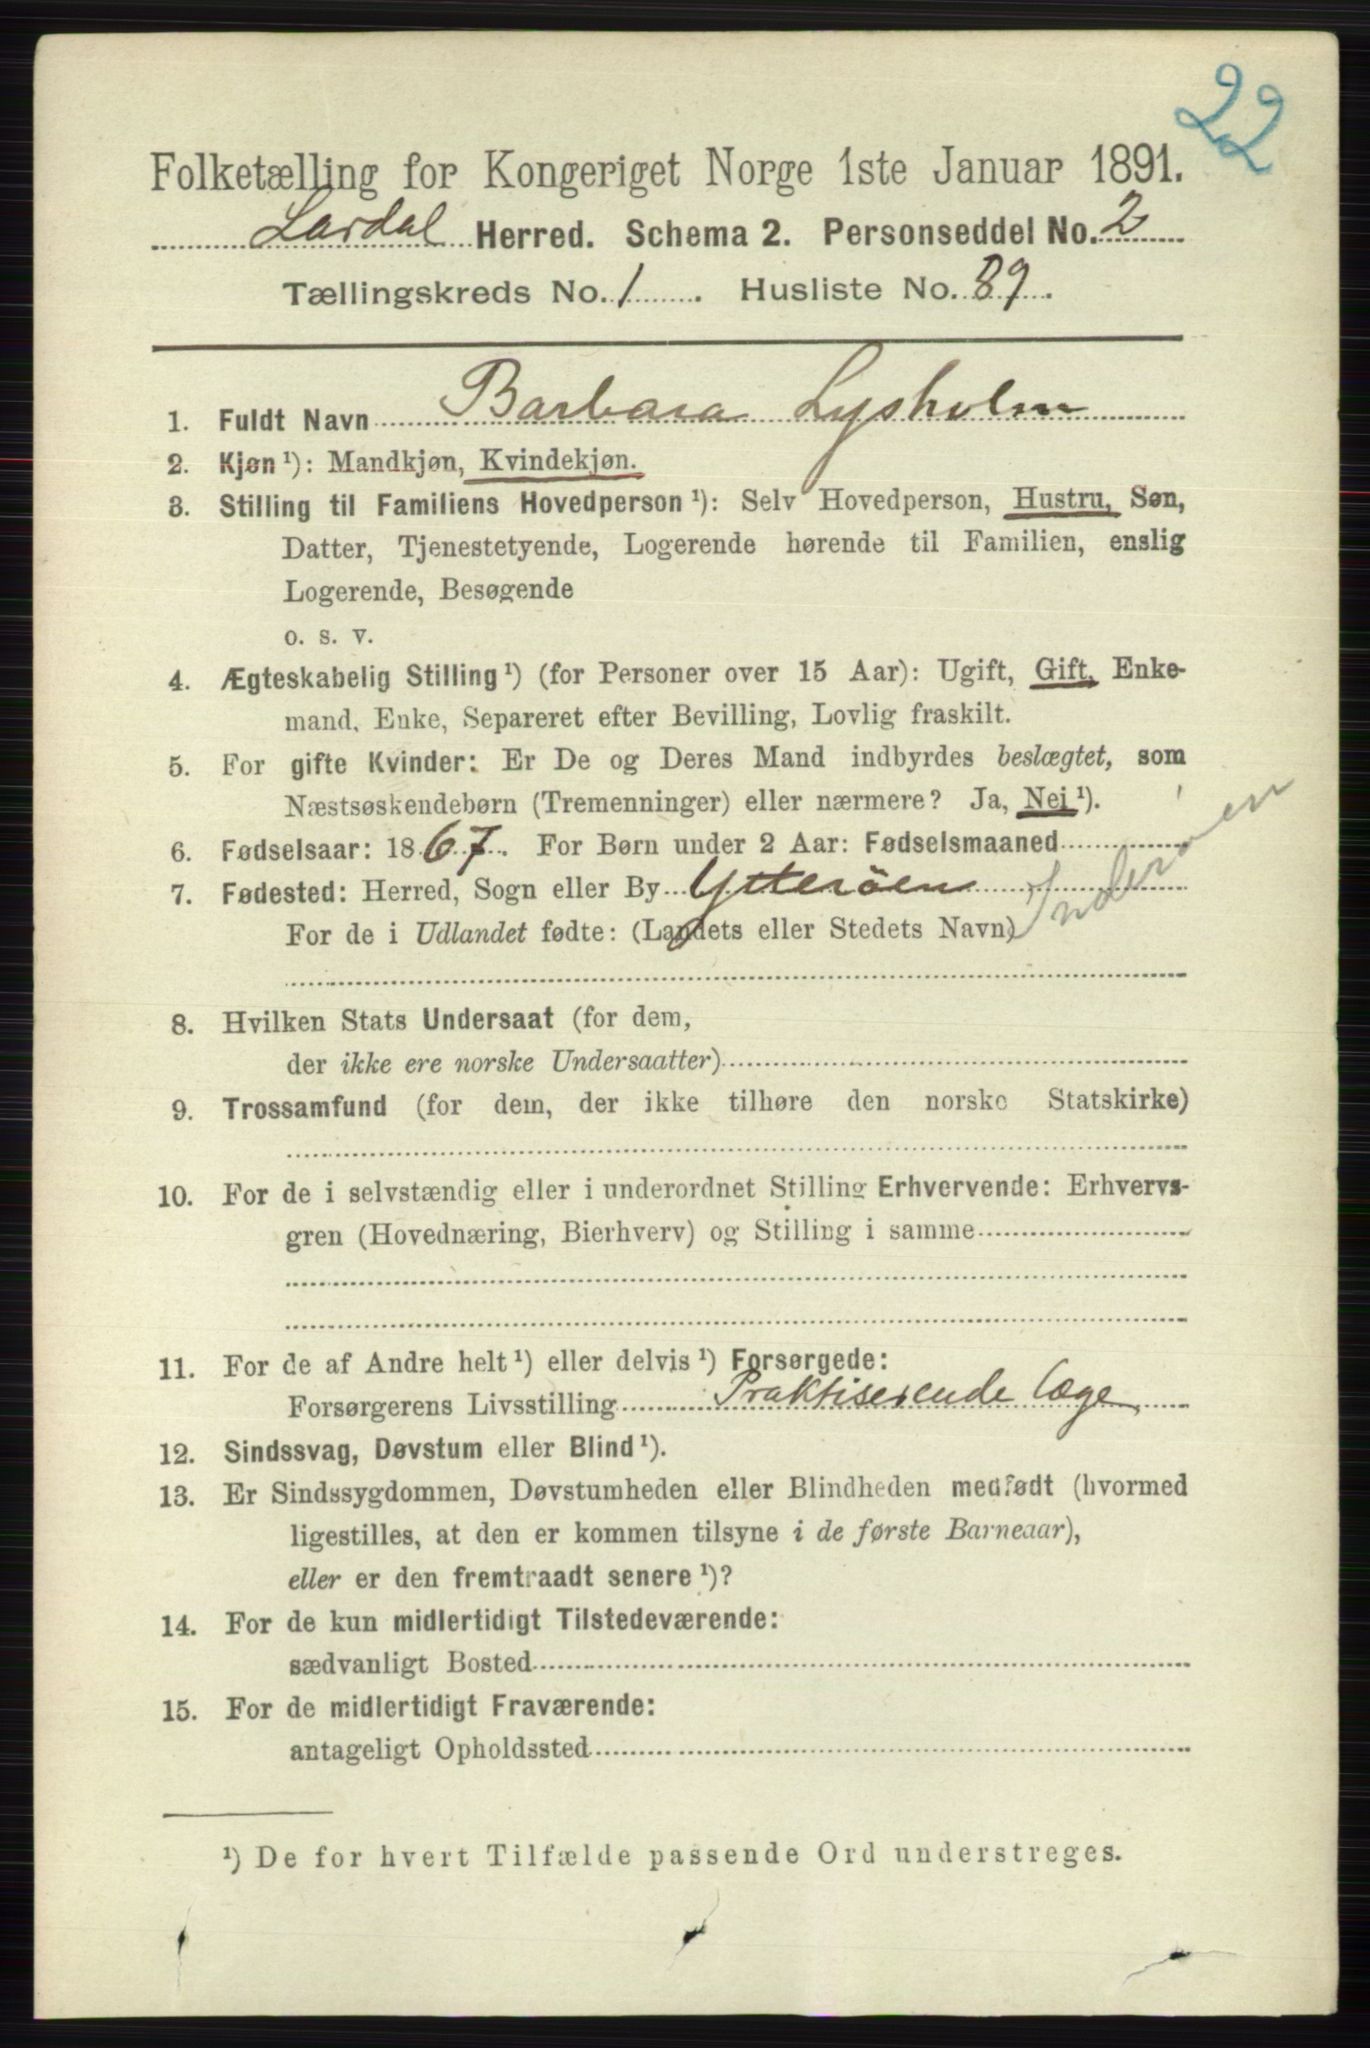 22
Folketælling for Kongeriget Norge 1ste Januar 1891.
Lardal Herred. Schema 2. Personseddel No. 2
Tællingskreds No. 1. Husliste No. 89.
1. Fuldt Navn Barbara Lysholm
2. Kjøn ¹): Mandkjøn, Kvindekjøn.
3. Stilling til Familiens Hovedperson ¹): Selv Hovedperson, Hustru, Søn,
Datter, Tjenestetyende, Logerende hørende til Familien, enslig
Logerende, Besøgende
o. s. v.
4. Ægteskabelig Stilling ¹) (for Personer over 15 Aar): Ugift, Gift, Enke-
mand, Enke, Separeret efter Bevilling, Lovlig fraskilt.
5. For gifte Kvinder: Er De og Deres Mand indbyrdes beslægtet, som
Næstsøskendebørn (Tremenninger) eller nærmere? Ja, Nej ¹).
6. Fødselsaar: 1867. For Børn under 2 Aar: Fødselsmaaned
7. Fødested: Herred, Sogn eller By Ytterøen Inderøen
For de i Udlandet fødte: (Landets eller Stedets Navn)
8. Hvilken Stats Undersaat (for dem,
der ikke ere norske Undersaatter)
9. Trossamfund (for dem, der ikke tilhøre den norske Statskirke)
10. For de i selvstændig eller i underordnet Stilling Erhvervende: Erhvervs-
gren (Hovednæring, Bierhverv) og Stilling i samme
11. For de af Andre helt ¹) eller delvis ¹) Forsørgede:
Forsørgerens Livsstilling Praktiserende læge
12. Sindssvag, Døvstum eller Blind ¹).
13. Er Sindssygdommen, Døvstumheden eller Blindheden medfødt (hvormed
ligestilles, at den er kommen tilsyne i de første Barneaar),
eller er den fremtraadt senere ¹)?
14. For de kun midlertidigt Tilstedeværende:
sædvanligt Bosted
15. For de midlertidigt Fraværende:
antageligt Opholdssted
¹) De for hvert Tilfælde passende Ord understreges.